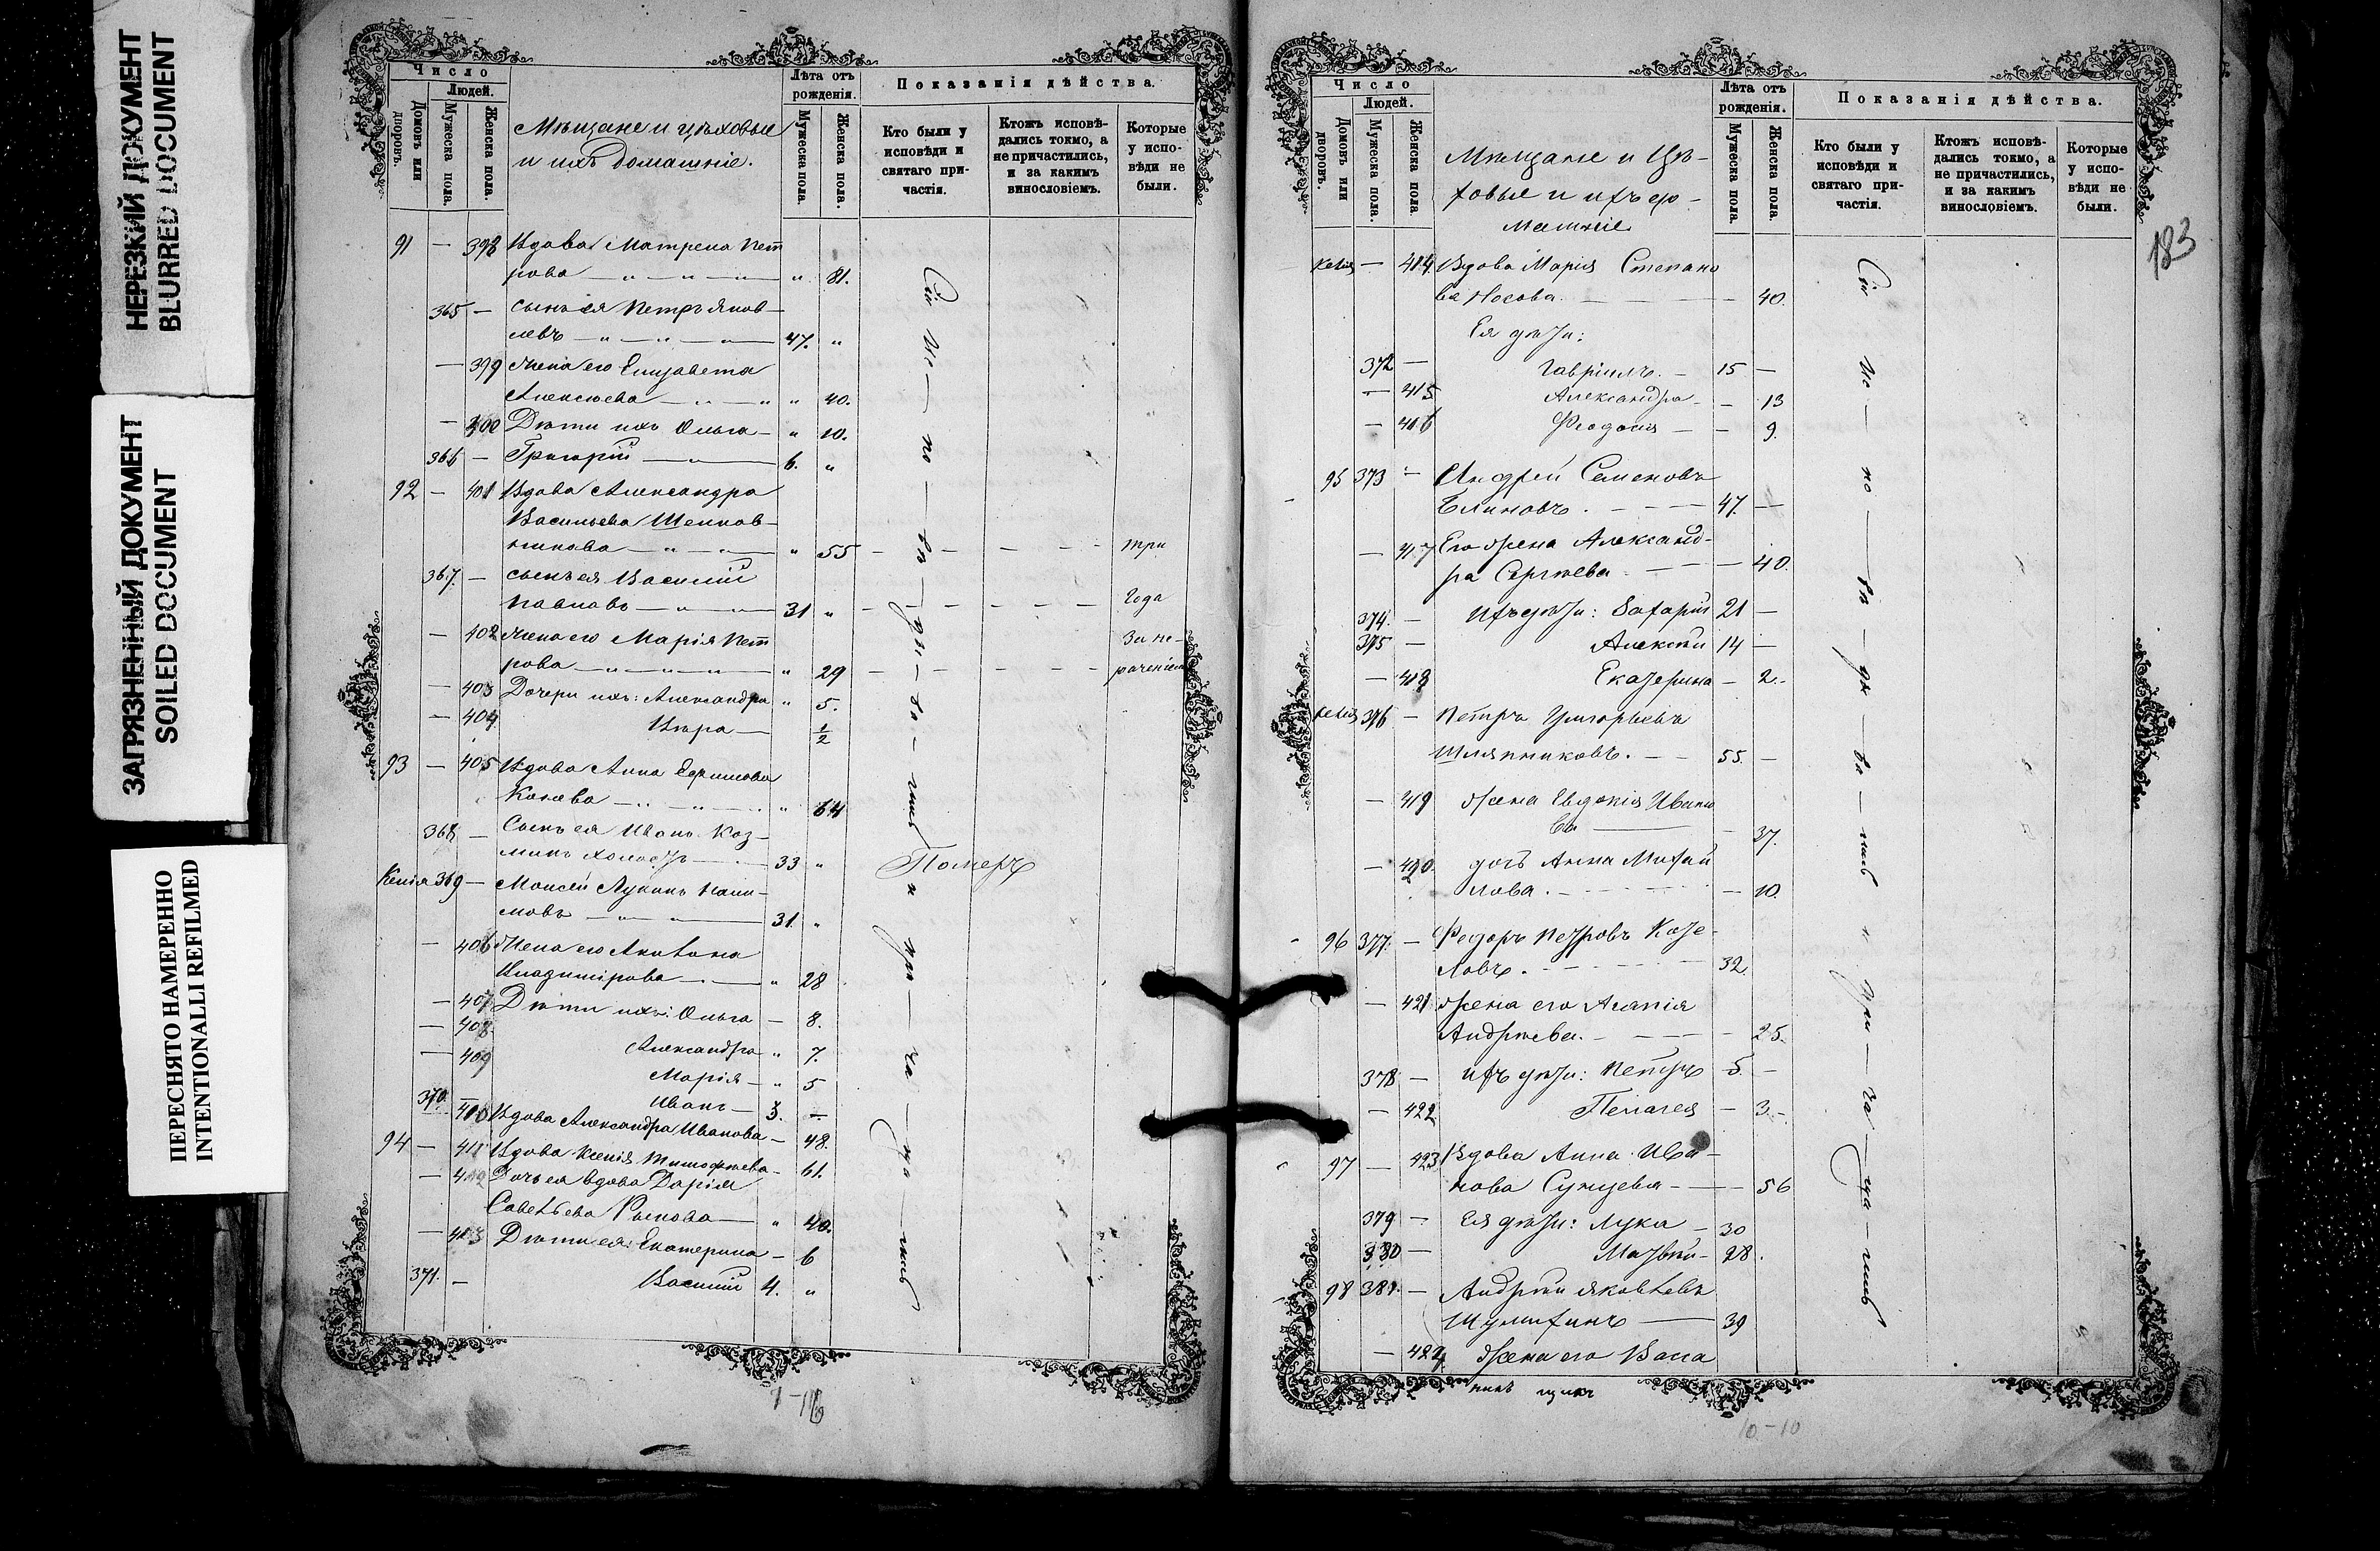 НЕРЕЗКИЙ ДОКУМЕНТ
BLURRED DOCUMENT
ЗАГРЯЗНЕННЫЙ ДОКУМЕНТ
SOILED DOCUMENT
ПЕРЕСНЯТО НАМЕРЕННО
INTENTIONALLI REFILMED
Число
Людей.
Домовъ или дворовъ.
Мужеска пола.
Женска пола.
Мѣщане и цѣховые
и ихъ домашніе.
Лѣта отъ рожденія.
Мужеска пола.
Женска пола.
Показанія дѣйства.
Кто были у исповѣди и святаго при-частія.
Ктожъ исповѣ-дались токмо, а не причастились, и за какимъ винословіемъ.
Которые у испо-вѣди не были.
91 — 398 Вдова Матрена Пет
рова — „ — „ — „ — „ 81.
365 — сынъ ея Петръ Яков-
левъ — „ — „ — „ — 47. „
— 399 Жена его Елизавета
Алексѣева — „ — „ „ 40.
— 400 Дѣти ихъ Ольга — „ 10.
366 — Григорій — „ — 6. „
92 — 401 Вдова Александра
Васильева Шелков-
никова — „ — „ — „ 55 — — — — три
367. — сынъ ея Василій
Павловъ — „ — „ — 31 „ — — — — года
— 402 Жена его Марія Пет за не-
рова — „ — „ — „ — „ 29 — — — — раченіем
— 403 Дочери ихъ: Александра „ 5.
— 404 Вѣра — 1/2
93 — 405 Вдова Анна Ефимова
Конева — „ — „ — „ 64
368 — Сынъ ея Иванъ Коз-
минъ холостъ — 33 „ Померъ
Келія 369 — Моисей Лукинъ
31. „
— 406 Жена его
Владимірова — „ 28
— 407 Дѣти ихъ: Ольга — 8.
— 408 Александра „ 7.
— 409 Марія — „ 5
370. — Иванъ — 3. —
410 Вдова Александра Иванова — 48.
94 — 411 Вдова Ксенія Тимофѣева — 61.
— 412 Дочь ея вдова Дарія
Савельева — „ 40.
— 413 Дѣти ея: Екатерина — 6
371. — Василій 4. „
Сіи ис — по — вѣ — ди — ва — лись и при — ча — ща — лись
Число
Людей.
Домовъ или дворовъ.
Мужеска пола.
Женска пола
Мѣщане и Цѣ-
ховые и ихъ до-
машніе
Лѣта отъ рожденія.
Мужеска пола.
Женска пола.
Показанія дѣйства.
Кто были у исповѣди и святаго при-частія.
Ктожъ исповѣ-дались токмо, а не причастились, и за какимъ винословіемъ.
Которые у испо-вѣди не были.
183
Келія — 414. Вдова Марія Степано
ва Носова. — — — 40.
Ея дѣти:
372 — Гавріилъ. — 15 —
— 415 Александра — — 13
— 416 Феодосія — — 9.
95 373 — Андрей Семеновъ
Блиновъ. — — — 47. —
— 417 Его жена Александ-
ра Сергѣева — — — 40.
374. — Ихъ дѣти: Захарій 21 —
375 — Алексѣй 14 —
— 418 Екатерина — 2. —
Келія 376 — Петръ Григорьевъ
Шляпниковъ. — — 55. —
— 419 жена Евдокія Ивано
ва — — 37.
— 420. дочь Анна Михай
лова. — — — — 10.
96 377. — Федоръ Петровъ Козе-
ловъ. — — — 32.
— 421 жена его Агапія
Андрѣева. — — — 25.
378. — ихъ дѣти: Петръ 5. —
— 422 Пелагея — 3. —
97 — 423 Вдова Анна Ива-
нова — — 56
379 — Ея дѣти: Лука — 30
380 — Матвѣй — 28.
98 381. — Андрѣй Яковлевъ
Шулятинъ — 39
— 424 жена его Васса
Сіи ис — по — вѣ — ды — ва — лись и при — ча — ща — лись
10-10